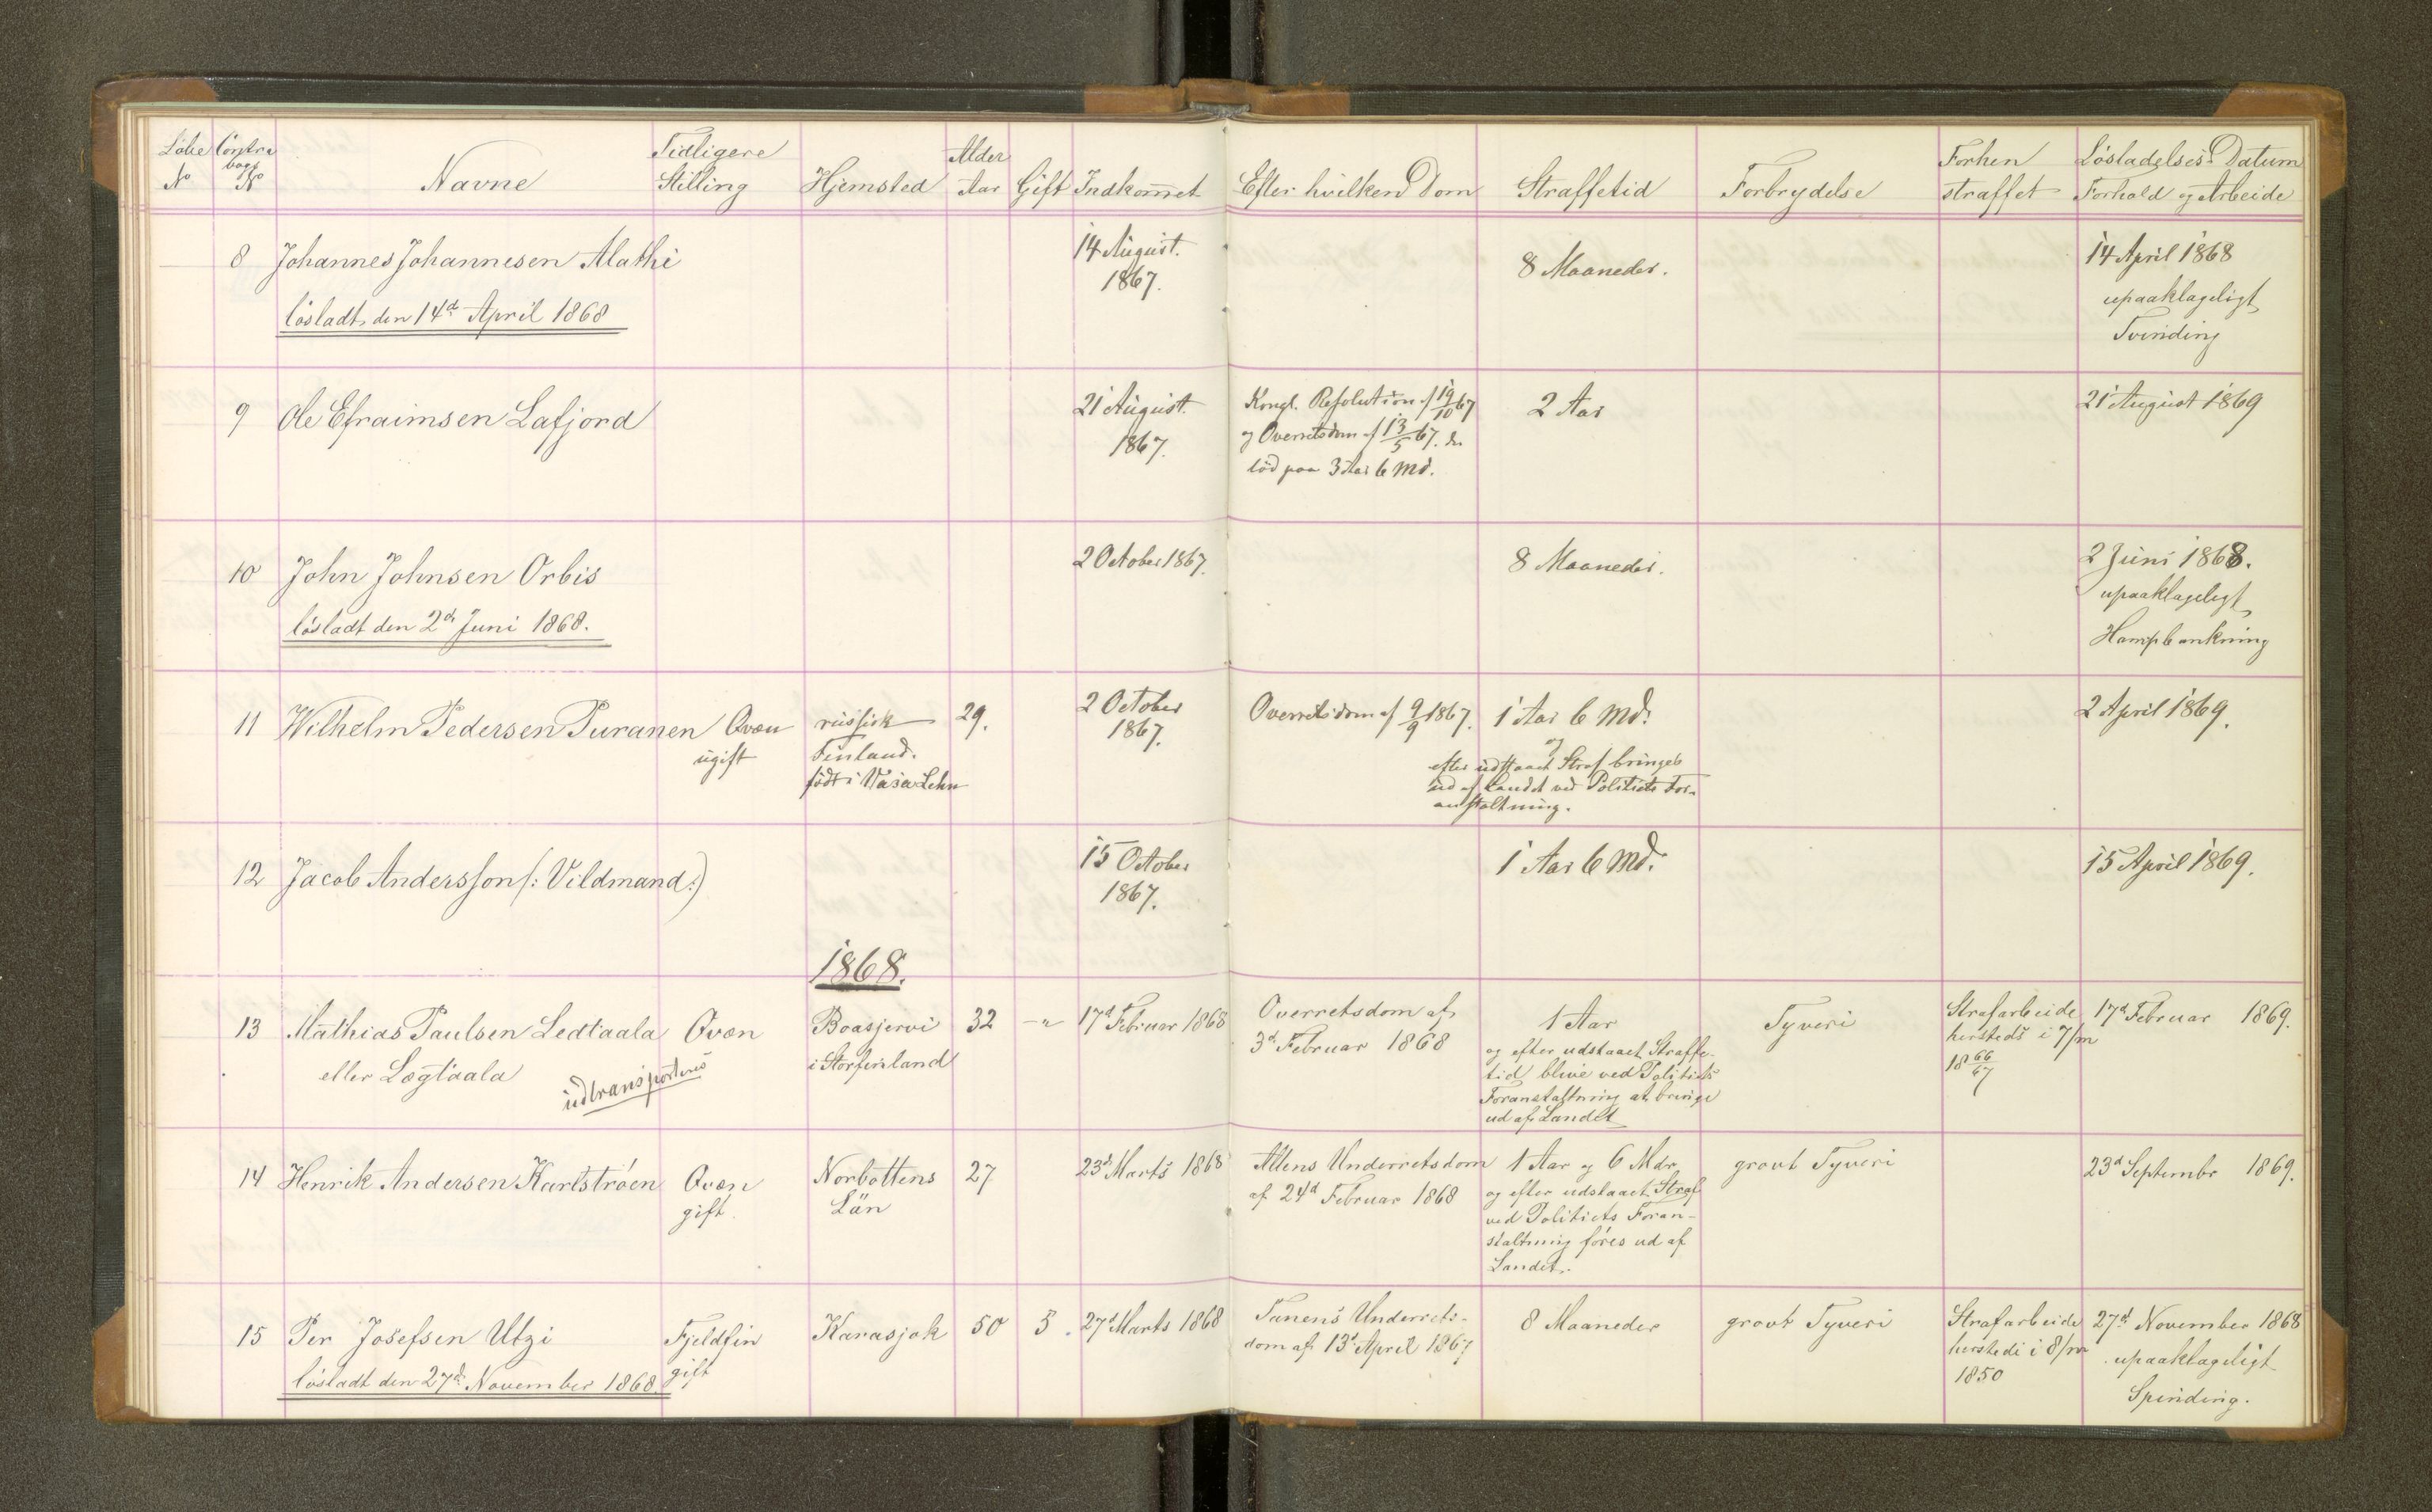 Løbe No
Contra bogs No
Navne
Tidligere Stilling
Hjemsted
Alder Aar
Gift
Indkom̅et
Efter hvilken Dom
Straffetid
Forbrydelse
Forhen straffet
Løsladelses Datum
Forhold og Arbeide
8 Johannes Johannesen Mathi
løsladt den 14d April 1868
14 August.
1867.
8 Maaneder.
14 April 1868
upaaklageligt
Tvinding
9 Ole Efraimsen Lafjord
21 August.
1867.
Kongl. Resolution af 19/10 67
og Overretsdom af 13/5 67. der
lød paa 3 Aar 6 Md.
2 Aar
21 August 1869
10 John Johnsen Orbis
løsladt den 2d Juni 1868.
2 October 1867.
8 Maaneder.
2 Juni 1868.
upaaklageligt
Hampbankning
11 Wilhelm Pedersen Puranen
Qvæn
ugift
russisk
Finland.
født i Vasa Lehn
29.
2 October
1867.
Overretsdom af 9/9 1867.
1 Aar 6 Md.
og
efter udstaaet Straf bringes
ud af Landet ved Politiets For-
anstaltning.
2 April 1869.
12 Jacob Andersson (: Vildmand :)
15 October
1867.
1 Aar 6 Md.
15 April 1869.
1868.
13 Mathias Paulsen Ledtaala
eller Lægtaala
udtransporteres
Qvæn
Boasjervi
i Storfinland
32
-"-
17d Februar 1868
Overretsdom af
3d Februar 1868
1 Aar
og efter udstaaet Straffe-
tid blive ved Politiets
Foranstaltning at bringe
ud af Landet
Tyveri
Strafarbeide
hersteds i 7/m
18 66/67
17d Februar 1869.
14 Henrik Andersen Karlstrøen
Qvæn
gift.
Norbottens
Län
27
23d Marts 1868
Altens Underretsdom
af 24d Februar 1868
1 Aar og 6 Mdr
og efter udstaaet Straf
ved Politiets Foran-
staltning føres ud af
Landet.
grovt Tyveri
23d Septembr 1869.
15 Per Josefsen Utzi
løsladt den 27d November 1868.
Fjeldfin
gift
Karasjok
50
3.
27d Marts 1868
Tanens Underrets-
dom af 13d April 1867
8 Maaneder
grovt Tyveri
Strafarbeide
herstedi i 8/m
1850
27d November 1868
upaaklageligt
Spinding.